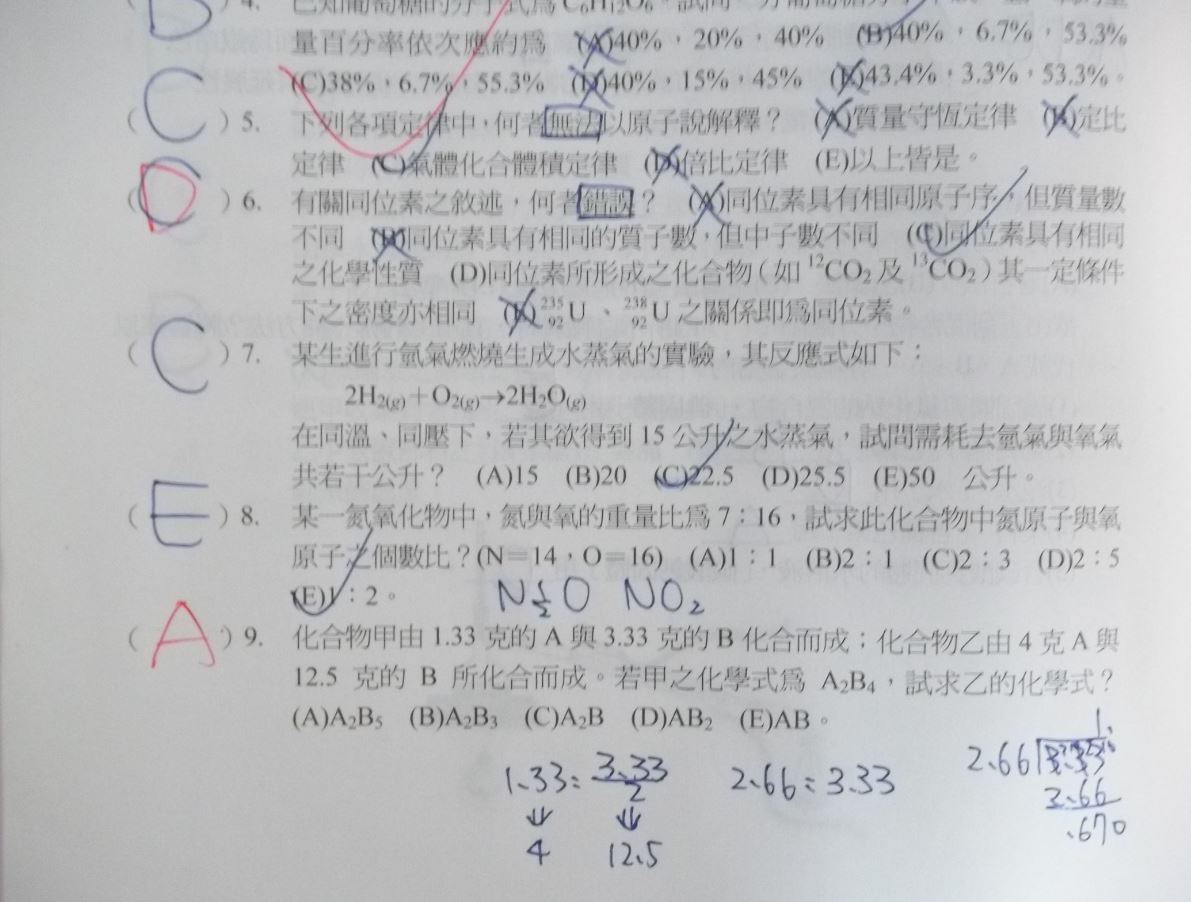 量百分率依次應約為 (A)40%,20%,40% (B)40%,6.7%,53.3%
(C)38%,6.7%,55.3% (D)40%,15%,45% (E)43.4%,3.3%,53.3%。
( C ) 5. 下列各項定律中,何者無法以原子說解釋? (A)質量守恆定律 (B)定比
定律 (C)氣體化合體積定律 (D)倍比定律 (E)以上皆是。
( D ) 6. 有關同位素之敘述,何者錯誤? (A)同位素具有相同原子序,但質量數
不同 (B)同位素具有相同的質子數,但中子數不同 (C)同位素具有相同
之化學性質 (D)同位素所形成之化合物(如 ¹²CO₂及 ¹³CO₂)其一定條件
下之密度亦相同 (E)²³⁵₉₂U、²³⁸₉₂U 之關係即為同位素。
( C ) 7. 某生進行氫氣燃燒生成水蒸氣的實驗,其反應式如下:
2H₂(g)+O₂(g)→2H₂O(g)
在同溫、同壓下,若其欲得到 15 公升之水蒸氣,試問需耗去氫氣與氧氣
共若干公升? (A)15 (B)20 (C)22.5 (D)25.5 (E)50 公升。
( E ) 8. 某一氮氧化物中,氮與氧的重量比為 7:16,試求此化合物中氮原子與氧
原子之個數比?(N=14,O=16) (A)1:1 (B)2:1 (C)2:3 (D)2:5
(E)1:2。 N½O NO₂
( A ) 9. 化合物甲由 1.33 克的 A 與 3.33 克的 B 化合而成;化合物乙由 4 克 A 與
12.5 克的 B 所化合而成。若甲之化學式為 A₂B₄,試求乙的化學式?
(A)A₂B₅ (B)A₂B₃ (C)A₂B (D)AB₂ (E)AB。
1.33:3.33/2 2.66:3.33
⇓ ⇓
4 12.5
1.
2.66
2.66
.670